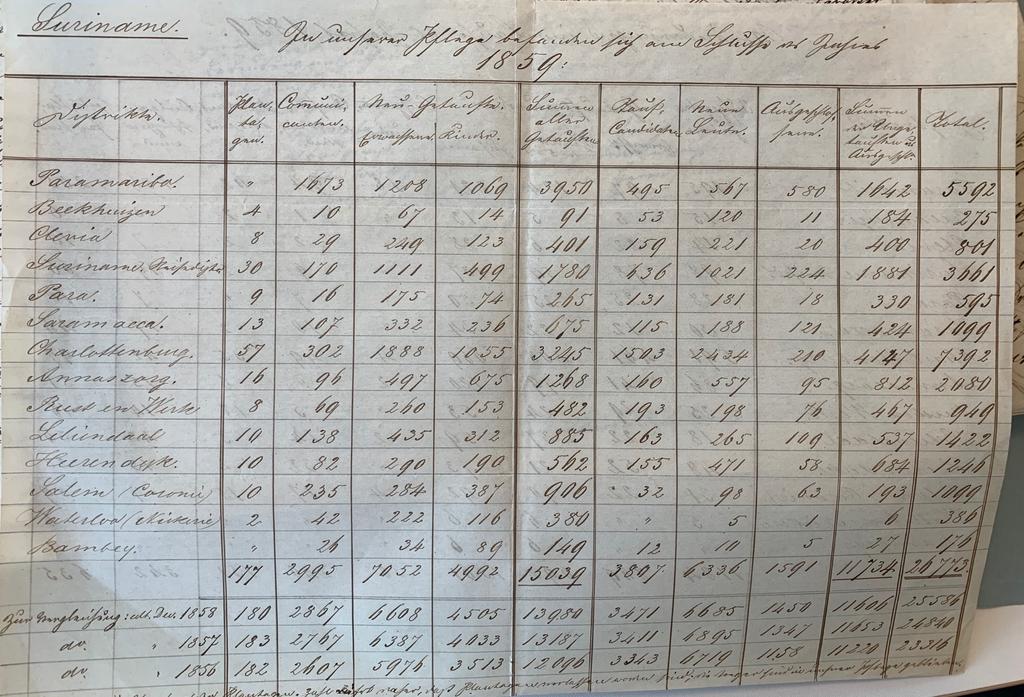 Suriname.
In unserer Pflege befanden sich am Schlusse des Jahres
1859:
Distrikte. Plan- Communi- Neu-Getaufte. Summen Tauf- Neue Ausgeschlos- Summen Total.
ta- canten. Erwachsene. Kinder. aller Candidaten Leute. sene.
gen. Getauften
Paramaribo. " 1673 1208 1069 3950 495 567 580 1642 5592
Beekhuizen 4 10 67 14 91 53 120 11 184 275
Clevia 8 29 249 123 401 159 221 20 400 801
Suriname, 30 170 1111 499 1780 636 1021 224 1881 3661
Para. 9 16 175 74 265 131 181 18 330 595
Saramacca. 13 107 332 236 675 115 188 121 424 1099
Charlottenburg. 57 302 1888 1055 3245 1503 2434 210 4147 7392
Annaszorg. 16 96 497 675 1268 160 557 95 812 2080
Rust en Werk 8 69 260 153 482 193 198 76 467 949
Liliendaal 10 138 435 312 885 163 265 109 537 1422
Heerendyk. 10 82 290 190 562 155 471 58 684 1246
Salem (Coronie) 10 235 284 387 906 32 98 63 193 1099
Waterloo (Nickerie 2 42 222 116 380 " 5 1 6 386
Bambey. " 26 34 89 149 12 10 5 27 176
177 2995 7052 4992 15039 3807 6336 1591 11734 26773
Zur Vergleichung: ult. Dec. 1858 180 2867 6608 4505 13980 3471 6685 1450 11606 25586
do. " 1857 183 2767 6387 4033 13187 3411 6895 1347 11653 24840
do. 1856 182 2607 5976 3513 12096 3343 6719 1158 11220 23316
Plantagen daß Plantagen verlassen worden sind, in unsrer Pflege geblieben